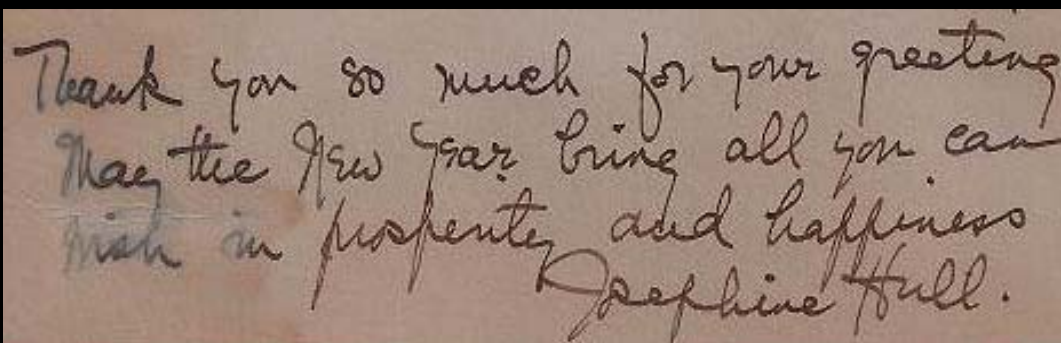 Thank you so much for your greeting
May the New Year bring all you can
wish in prosperity and happiness
Josephine Hull.